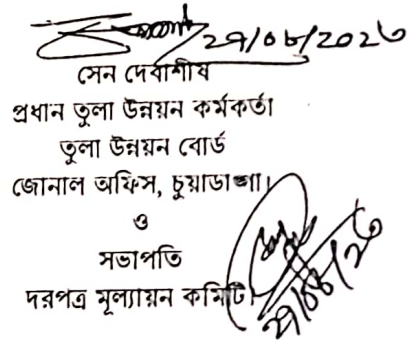 ২৭/০৮/২০২৩
সেন দেবাশীষ
প্রধান তুলা উন্নয়ন কর্মকর্তা
তুলা উন্নয়ন বোর্ড
জোনাল অফিস, চুয়াডাঙ্গা।
ও
সভাপতি
দরপত্র মূল্যায়ন কমিটি।